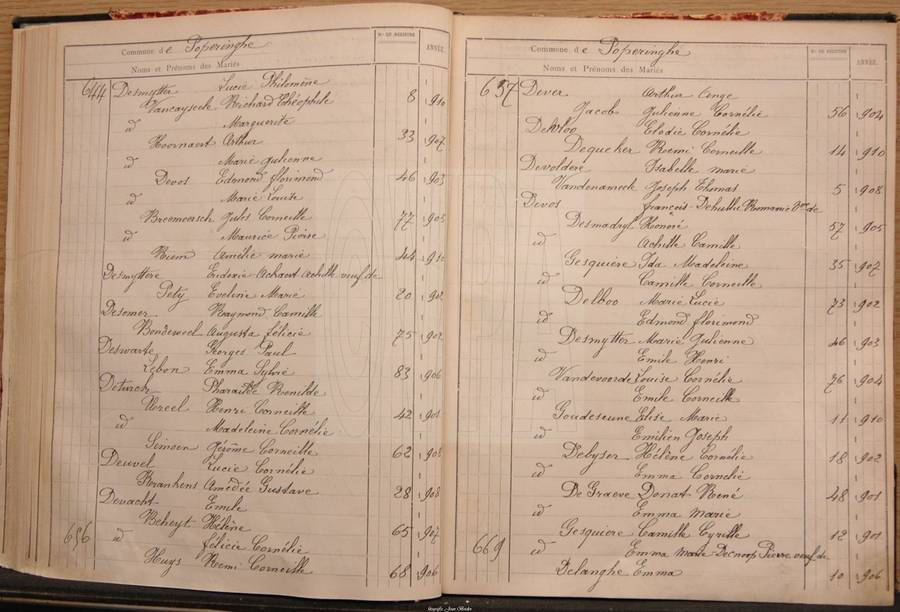 Commune de Poperinghe
Nos DE REGISTRE
ANNÉE.
Noms et Prénoms des Mariés
644 Desmytter Lucie Philomène
Vancayseele Richard Théophile 8 910
id Marguerite
Hoornaert Arthur 33 907
id Marie Julienne
Devos Edmond florimond 46 903
id Marie Louise
Breemeersch Jules Corneille 77 905
id Maurice Pierre
Rum Amélie marie 44 910
Desmyttere Achille veuf de
Pety Eveline Marie 20 902
Desomer Raymond Camille
Bonderweel Augusta félicie 75 902
Deswarte Georges Paul
Lebon Emma Sylvie 83 906
Deturck Pharaïlde Romilde
Noreel Henri Corneille 42 901
id Madeleine Cornélie
Simoen Jérôme Corneille 62 908
Deuvel Lucie Cornélie
Branhens Amédée Gustave 28 908
Devacht Emile
Beheyt Hélène 65 907
656 id félicie Cornélie
Huys Remi Corneille 68 906
Commune de Poperinghe
Nos DE REGISTRE
ANNÉE.
Noms et Prénoms des Mariés
657 Dever Arthur Ange
Jacob Julienne Cornélie 56 904
Elodie Cornélie
Dequeker Remi Corneille 14 910
Devoldere Isabelle marie
Vandenameele Joseph Thomas 5 908
Devos françois Dehulle Romanie Vve de
Desmadryl Honoré 57 905
id Achille Camille
Gesquière Ida Madeleine 35 907
id Camille Corneille
Delboo Marie Lucie 73 902
id Edmond florimond
Desmytter Marie Julienne 46 903
id Emile Henri
Vandevoorde Louise Cornélie 76 904
id Emile Corneille
Goudeseune Elise Marie 11 910
id Emilien Joseph
Debyser Hélène Cornélie 18 902
id Emma Cornélie
De Graeve Donat René 48 901
id Emma Marie
Gesquiere Camille Cyrille 12 901
669 id Emma Marie Decroop Pierre veuf de
Delanghe Emma 10 906